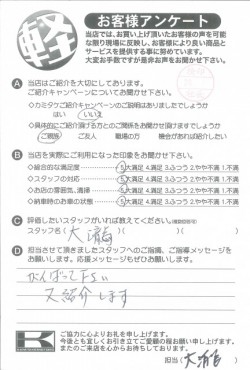 軽
お客様アンケート
当店では、お買い上げ頂いたお客様の声を可能
な限り現場に反映し、お客様により良い商品と
サービスを提供する事に努めています。
大変お手数ですが是非お声をお聞かせ下さい。
A 当店はご紹介を大切にしております。
ご紹介キャンペーンについてお聞かせ下さい。
◇カミタケご紹介キャンペーンのご説明はありましたでしょうか
はい いいえ
◇具体的にご紹介頂ける方とのご関係をお聞かせ下さいませんでしょうか
ご親族 ご友人 職場の方 機会があれば紹介したい
B 当店を実際にご利用になった印象をお聞かせ下さい。
◇総合的な満足度 5.大満足 4.満足 3.ふつう 2.やや不満 1.不満
◇スタッフの対応 5.大満足 4.満足 3.ふつう 2.やや不満 1.不満
◇お店の雰囲気、清掃 5.大満足 4.満足 3.ふつう 2.やや不満 1.不満
◇納車時のお車の状態 5.大満足 4.満足 3.ふつう 2.やや不満 1.不満
C 評価したいスタッフがいれば教えてください。
スタッフ名( 大浦 )
D 担当させて頂きましたスタッフへのご指摘、ご指導メッセージを
お願いします。応援メッセージもぜひお願いします。
がんばって下さい
又紹介します
K
ご協力に心よりお礼を申し上げます。
今後とも宜しくお引き立てご愛顧の程お願い申し上げます。
またのご来店を心からお待ちしております。
担当( 大浦 )